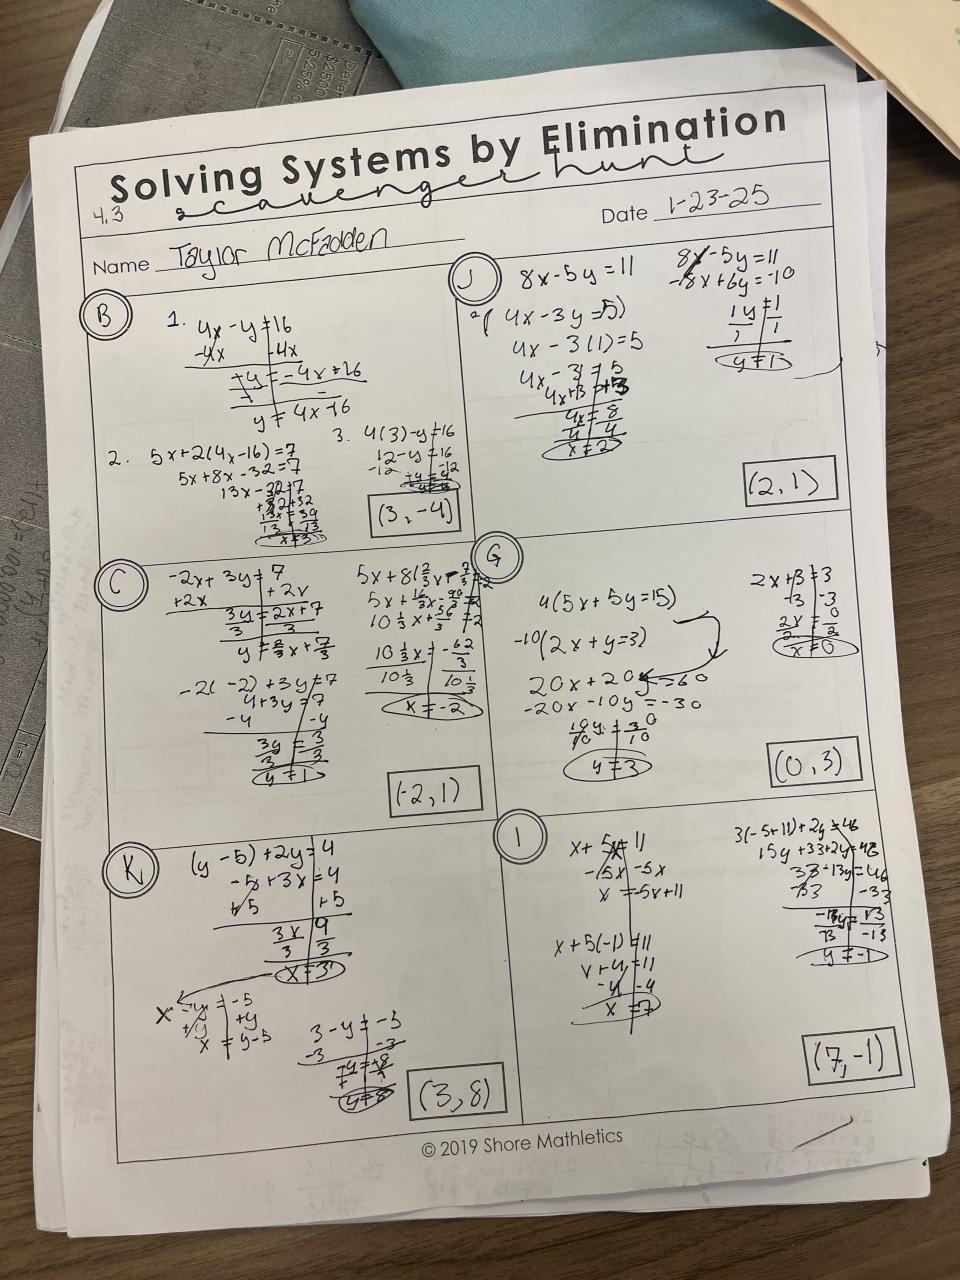 Solving Systems by Elimination
scavenger hunt
4.3
Date 1-23-25
Name Taylor McFadden
B
1. 4x - y = 16
-4x -4x
-y = -4x + 16
y = 4x - 16
2. 5x + 2(4x - 16) = 7
5x + 8x - 32 = 7
13x - 32 = 7
+32 +32
13x = 39
13 13
x = 3
3. 4(3) - y = 16
12 - y = 16
-12 -12
(3, -4)
J
8x - 5y = 11
2(4x - 3y = 5)
4x - 3(1) = 5
4x - 3 = 5
4x + 3 +3
4x = 8
4 4
x = 2
8x - 5y = 11
-8x + 6y = -10
1y = 1
1 1
y = 1
(2, 1)
C
-2x + 3y = 7
+2x + 2x
3y = 2x + 7
3 3
y = 2/3 x + 7/3
-2(-2) + 3y = 7
4 + 3y = 7
-4 -4
3y = 3
3 3
y = 1
10 1/3 x + 56/3 = 2
10 1/3 x = -62/3
10 1/3 10 1/3
x = -2
(-2, 1)
G
4(5x + 5y = 15)
-10(2x + y = 3)
20x + 20y = 60
-20x - 10y = -30
10y = 30
10 10
y = 3
2x + 3 = 3
-3 -3
2x = 0
2 2
x = 0
(0, 3)
K
(y - 5) + 2y = 4
-5 + 3x = 4
+5 +5
3x 9
3 3
x = 3
x - y = -5
+y +y
x = y - 5
3 - y = -5
-3 -3
y = 8
(3, 8)
I
x + 5x = 11
-5x -5x
x = -5x + 11
x + 5(-1) = 11
x + 4 = 11
-4 -4
x = 7
3(-5 + 11) + 2y = 46
15y + 33 + 2y = 46
33 - 13y = 46
-33 -33
-13y = 13
13 -13
y = -1
(7, -1)
© 2019 Shore Mathletics